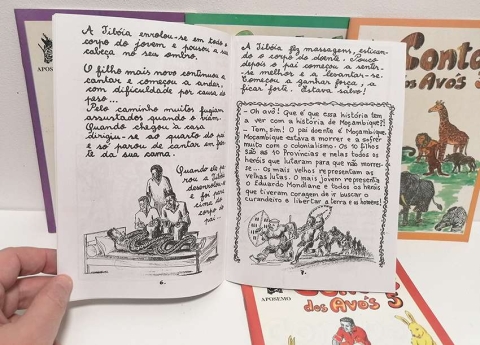 A Jibóia enrolou-se em todo o
corpo do jovem e pousou a sua
cabeça no seu ombro.
O filho mais novo continuou a
cantar e começou a andar,
com dificuldade por causa do
peso...
Pelo caminho muitos fugiam
assustados quando o viam.
Quando chegou a casa
dirigiu-se ao quarto do pai
e só parou de cantar em fren-
te da sua cama.
Quando ele pa-
rou a Jibóia
desenrolou-se
e foi para
cima do
corpo do
pai...
6.
A Jibóia fez massagens, estican-
do o corpo do doente. Pouco
depois o pai começou a sentir-
-se melhor e a levantar-se.
Começou a ganhar força, a
ficar forte. Estava salvo!
- Oh avó! Que é que essa história tem
a ver com a história de Moçambique?!
- Tem, sim! O pai doente é Moçambique.
Moçambique estava a morrer e a sofrer
muito com o colonialismo. Os 10 filhos
são as 10 Províncias e nelas todos os
heróis que lutaram para que não morres-
se... Os mais velhos representam as
velhas lutas. O mais jovem representa
o Eduardo Mondlane e todos os heróis
que tiveram coragem de ir buscar o
curandeiro e libertar a terra e os homens!
7.
APOSEMO
Conto
dos Avós
APOSEMO
dos Avós 5